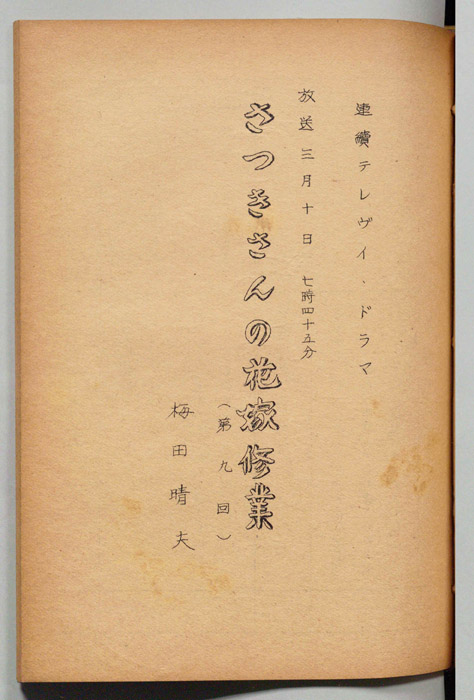 連續テレヴィ・ドラマ
放送三月十日 七時四十五分
さつきさんの花嫁修業
(第九回)
梅田晴夫